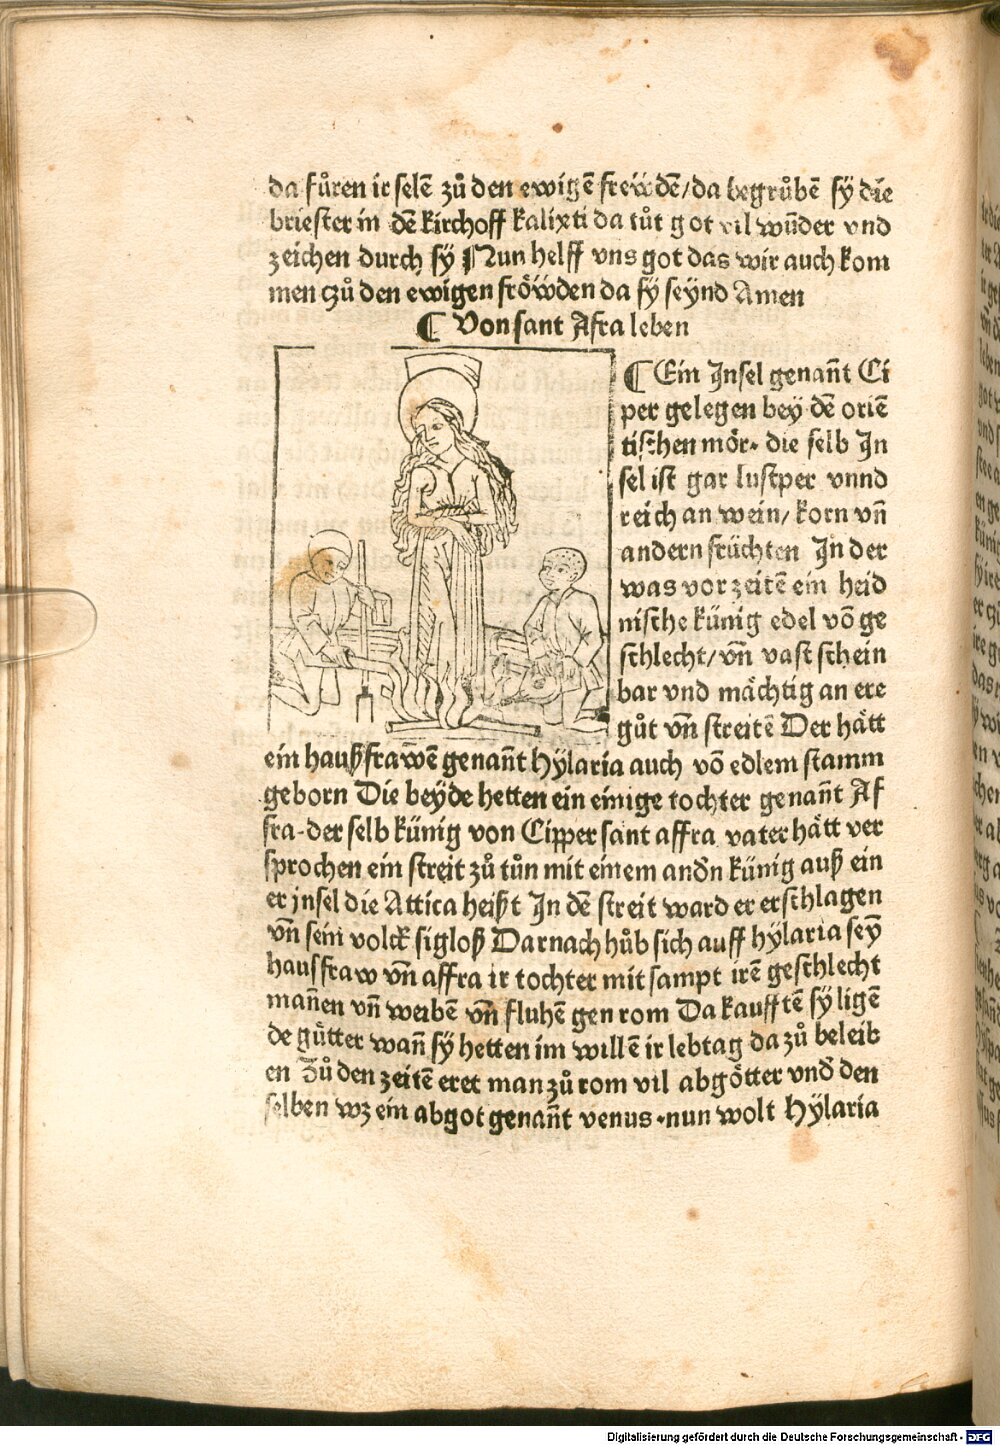 da fůren ir selē zů den ewigē frewdē/ da begrůbē sÿ die
briester in dē kirchoff kalixti da tůt got vil wūder vnd
zeichen durch sÿ ¶ Nun helff vns got das wir auch kom
men tzů den ewigen fröwden da sÿ seynd Amen
¶ Von sant Afra leben
¶ Ein Insel genañt Ci
per gelegen beÿ dē oriē
tischen mör· die selb In
sel ist gar lustper vnnd
reich an wein/ korn vñ
andern früchten In der
was vor zeitē ein heid
nische künig edel vō ge
schlecht/ vñ vast schein
bar vnd mächtig an ere
gůt vñ streitē Der hätt
ein haußfrawē genañt Hÿlaria auch vō edlem stamm
geborn Die beÿde hetten ein einige tochter genañt Af
fra· der selb künig von Cipper sant affra vater hätt ver
sprochen ein streit zů tůn mit einem andñ künig auß ein
er insel die Attica heißt In dē streit ward er erschlagen
vñ sein volck sigloß Darnach hůb sich auff hÿlaria seÿ
hausfraw vñ affra ir tochter mit sampt irē geschlecht
mañen vñ weibē vñ fluhē gen rom Da kaufftē sÿ ligē
de gůtter wañ sÿ hetten im willē ir lebtag da zů beleib
en Zů den zeitē eret man zů rom vil abgötter vnd̄ den
selben wz ein abgot genañt venus ·nun wolt Hÿlaria
Digitalisierung gefördert durch die Deutsche Forschungsgemeinschaft - DFG